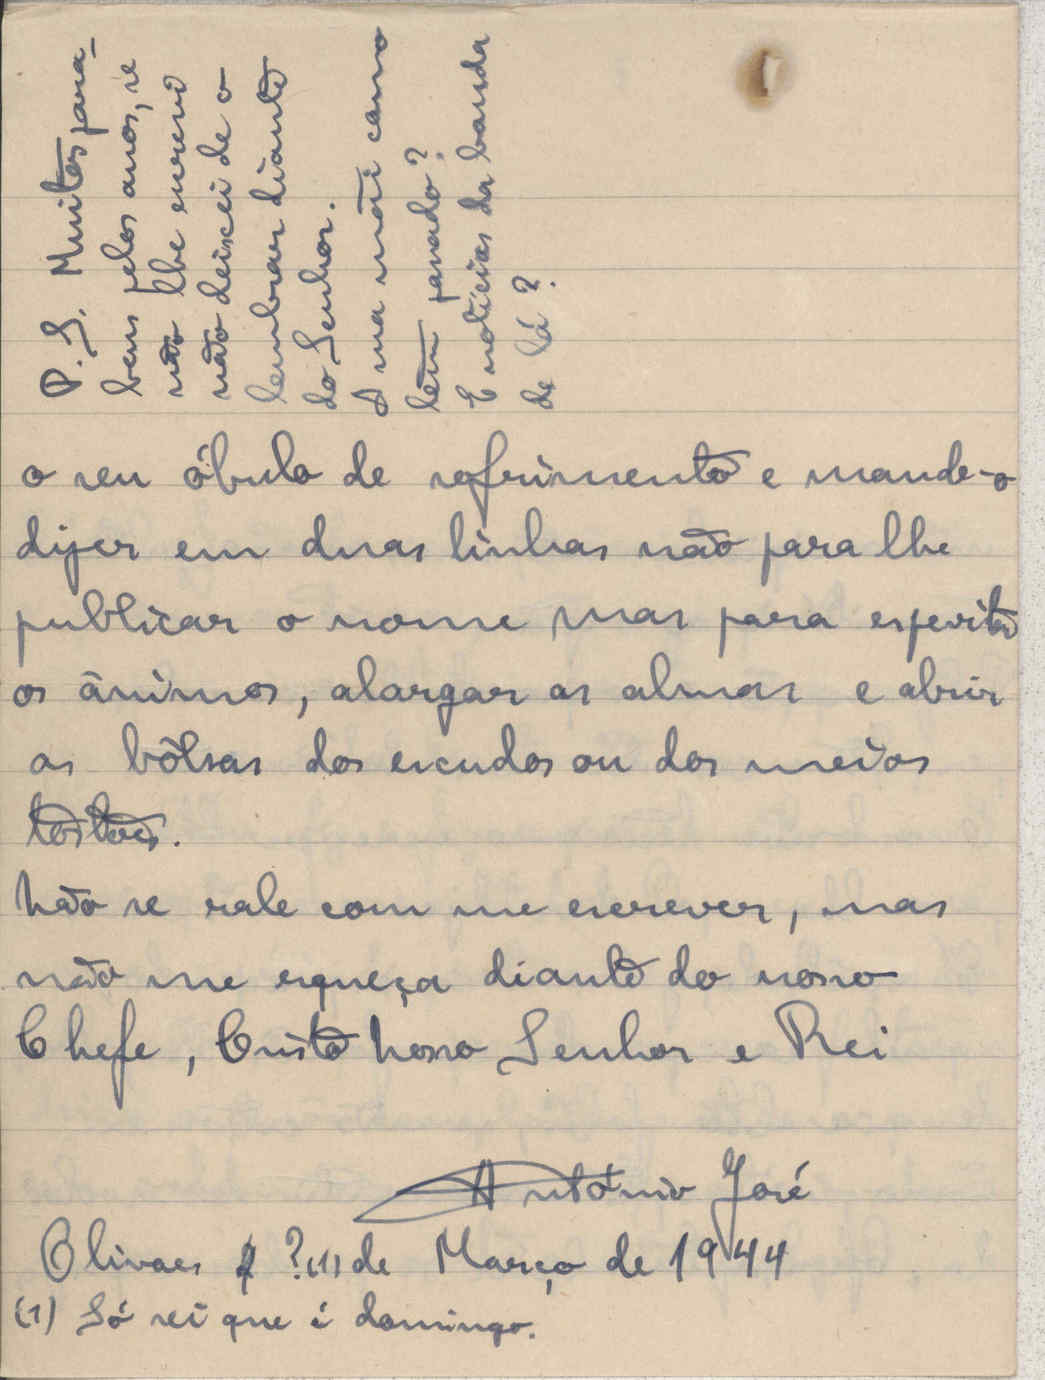 P.S. Muitos para-
bens pelos anos, se
não lhe escrevi
não deixei de o
lembrar diante
do Senhor.
A sua mãi como
tem passado?
E noticias da banda
de lá?
o seu óbulo de sofrimento e mande-o
dizer em duas linhas não para lhe
publicar o nome mas para espevitar
os ânimos, alargar as almas e abrir
as bôlsas dos escudos ou dos meios
tostões.
Não se rale com me escrever, mas
não me esqueça diante do nosso
Chefe, Cristo Nosso Senhor e Rei
António José
Olivaes ?(1) de Março de 1944
(1) Só sei que é domingo.